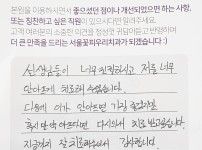 본원을 이용하시면서 좋으셨던 점이나 개선되었으면 하는 사항,
또는 칭찬하고 싶은 직원이 있으시다면 알려주세요.
고객 여러분의 소중한 의견을 정성껏 귀담아듣고 반영하여
더 큰 만족을 드리는 서울꽃피우리치과가 되겠습니다 :)
선생님들이 너무 친절하시고 저를 너무
안아프게 치료해 주셨습니다.
다음에 이가 안아프면 가장 좋겠지만
혹시 만약 아프다면 다시와서 치료받고싶습니다.
지금까지 잘 치료해주셔서 감사합니다.